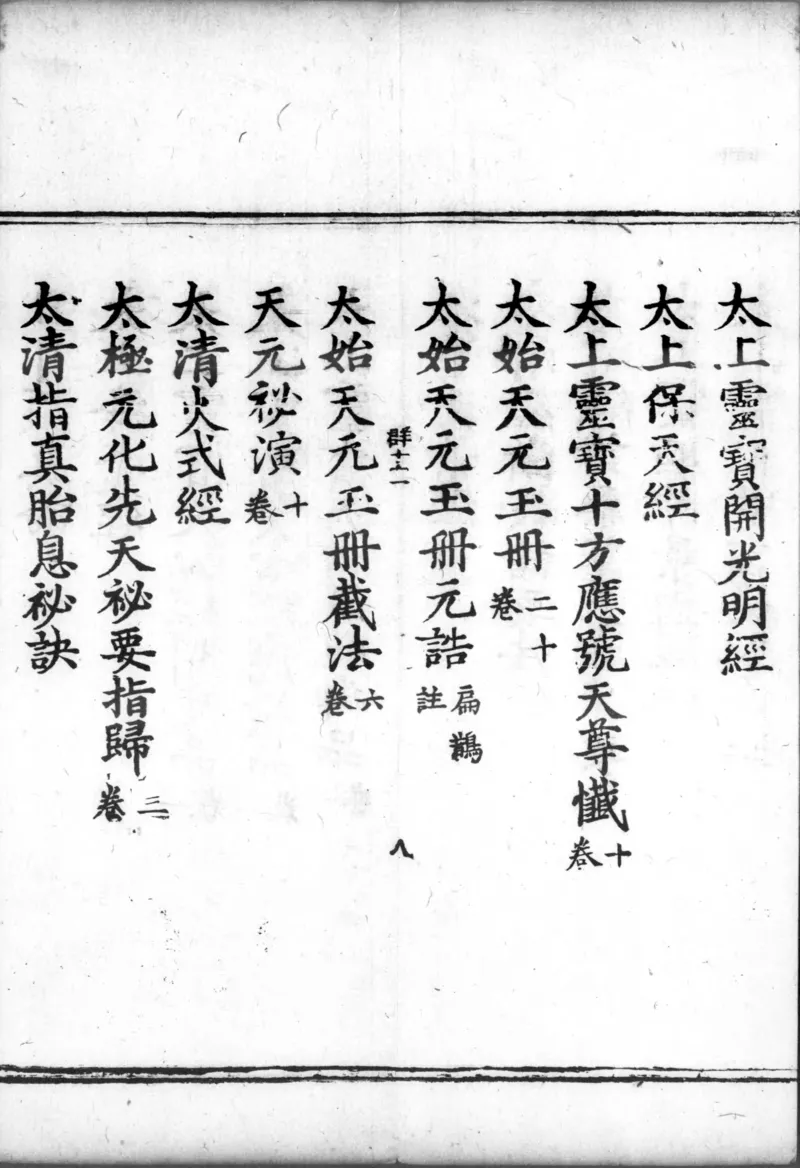 太上靈寶開光明經
太上保天經
太上靈寶十方應號天尊懺十卷
太始天元玉冊二十卷
太始天元玉冊元誥扁鵲註
群十二
八
太始天元玉冊截法六卷
天元祕演十卷
太清火式經
太極元化先天祕要指歸三卷
太清指真胎息祕訣